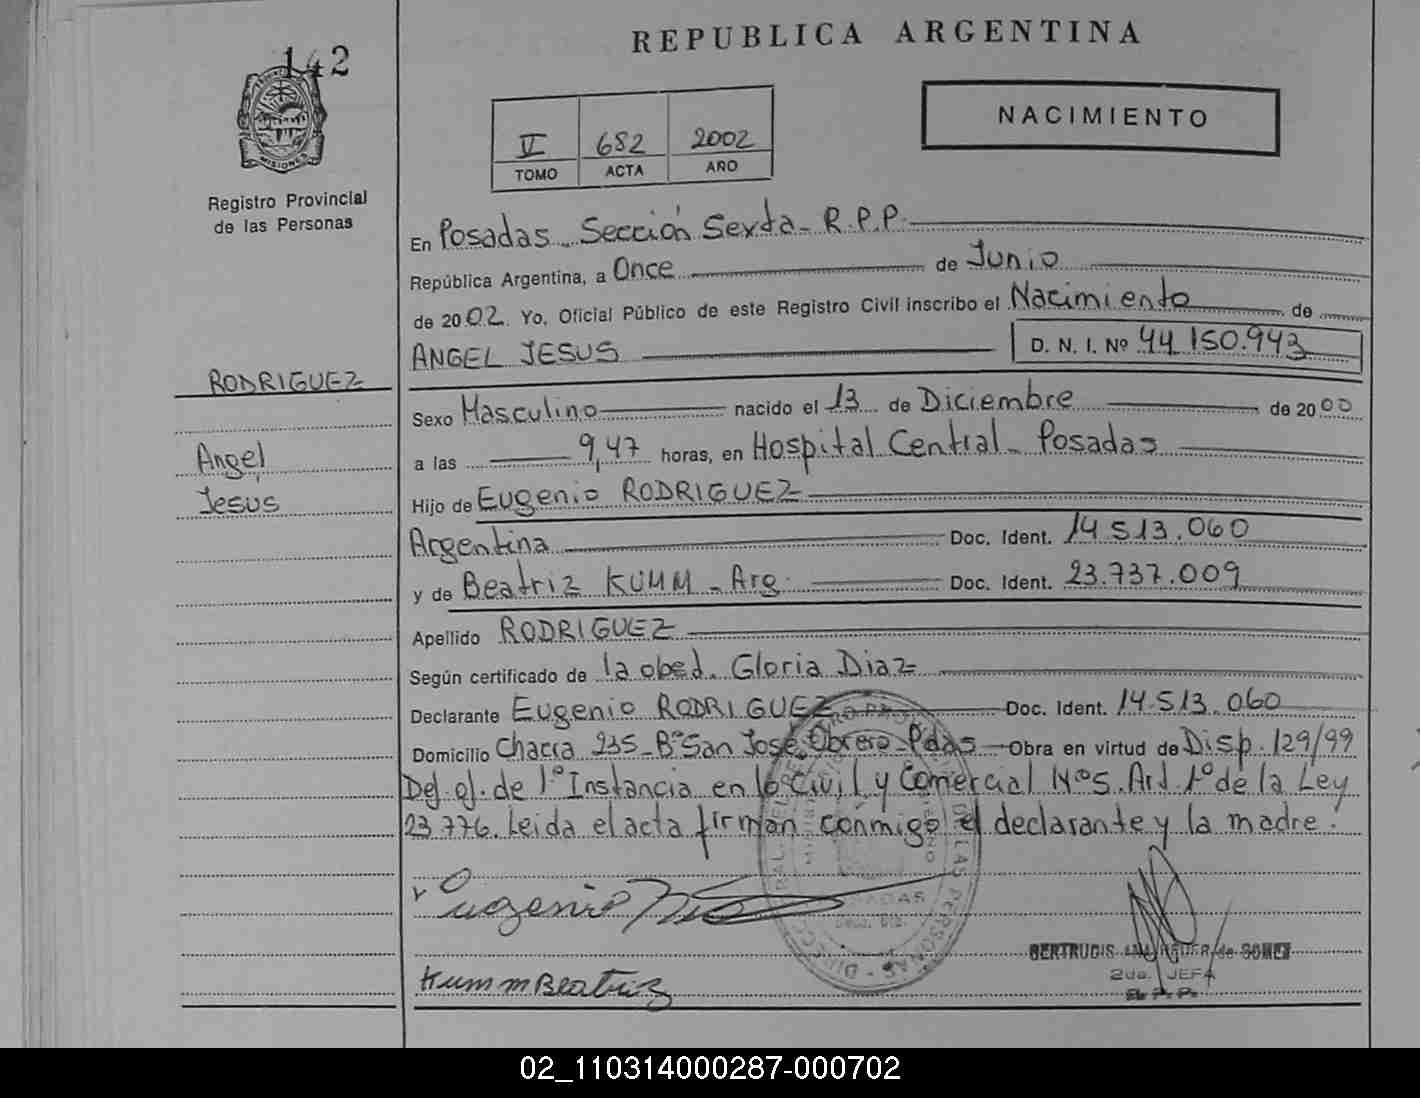 142
REPUBLICA ARGENTINA
NACIMIENTO
V 682 2002
TOMO ACTA AÑO
MISIONES
Registro Provincial
de las Personas
En Posadas Sección Sexta - R.P.P.
República Argentina, a Once de Junio
de 2002. Yo, Oficial Público de este Registro Civil inscribo el Nacimiento de
ANGEL JESUS D. N. I. Nº 44 150.943
RODRIGUEZ
Angel
Jesus
Sexo Masculino nacido el 13 de Diciembre de 2000
a las 9,47 horas, en Hospital Central - Posadas
Hijo de Eugenio RODRIGUEZ
Argentina Doc. Ident. 14 513.060
y de Beatriz KUMM - Arg. Doc. Ident. 23.737.009
Apellido RODRIGUEZ
Según certificado de la obed. Gloria Diaz
Declarante Eugenio RODRIGUEZ Doc. Ident. 14.513.060
Domicilio Chacra 235 - Bº San José Obrero - Pdas - Obra en virtud de Disp. 129/99
Def. of. de 1º Instancia en lo Civil y Comercial Nº 5. Art. 1º de la Ley
23.776. Leida el acta firman conmigo el declarante y la madre.
Eugenio
Kumm Beatriz
BERTRUDIS de GOMEZ
2da. JEFA
R.P.P.
02_110314000287-000702